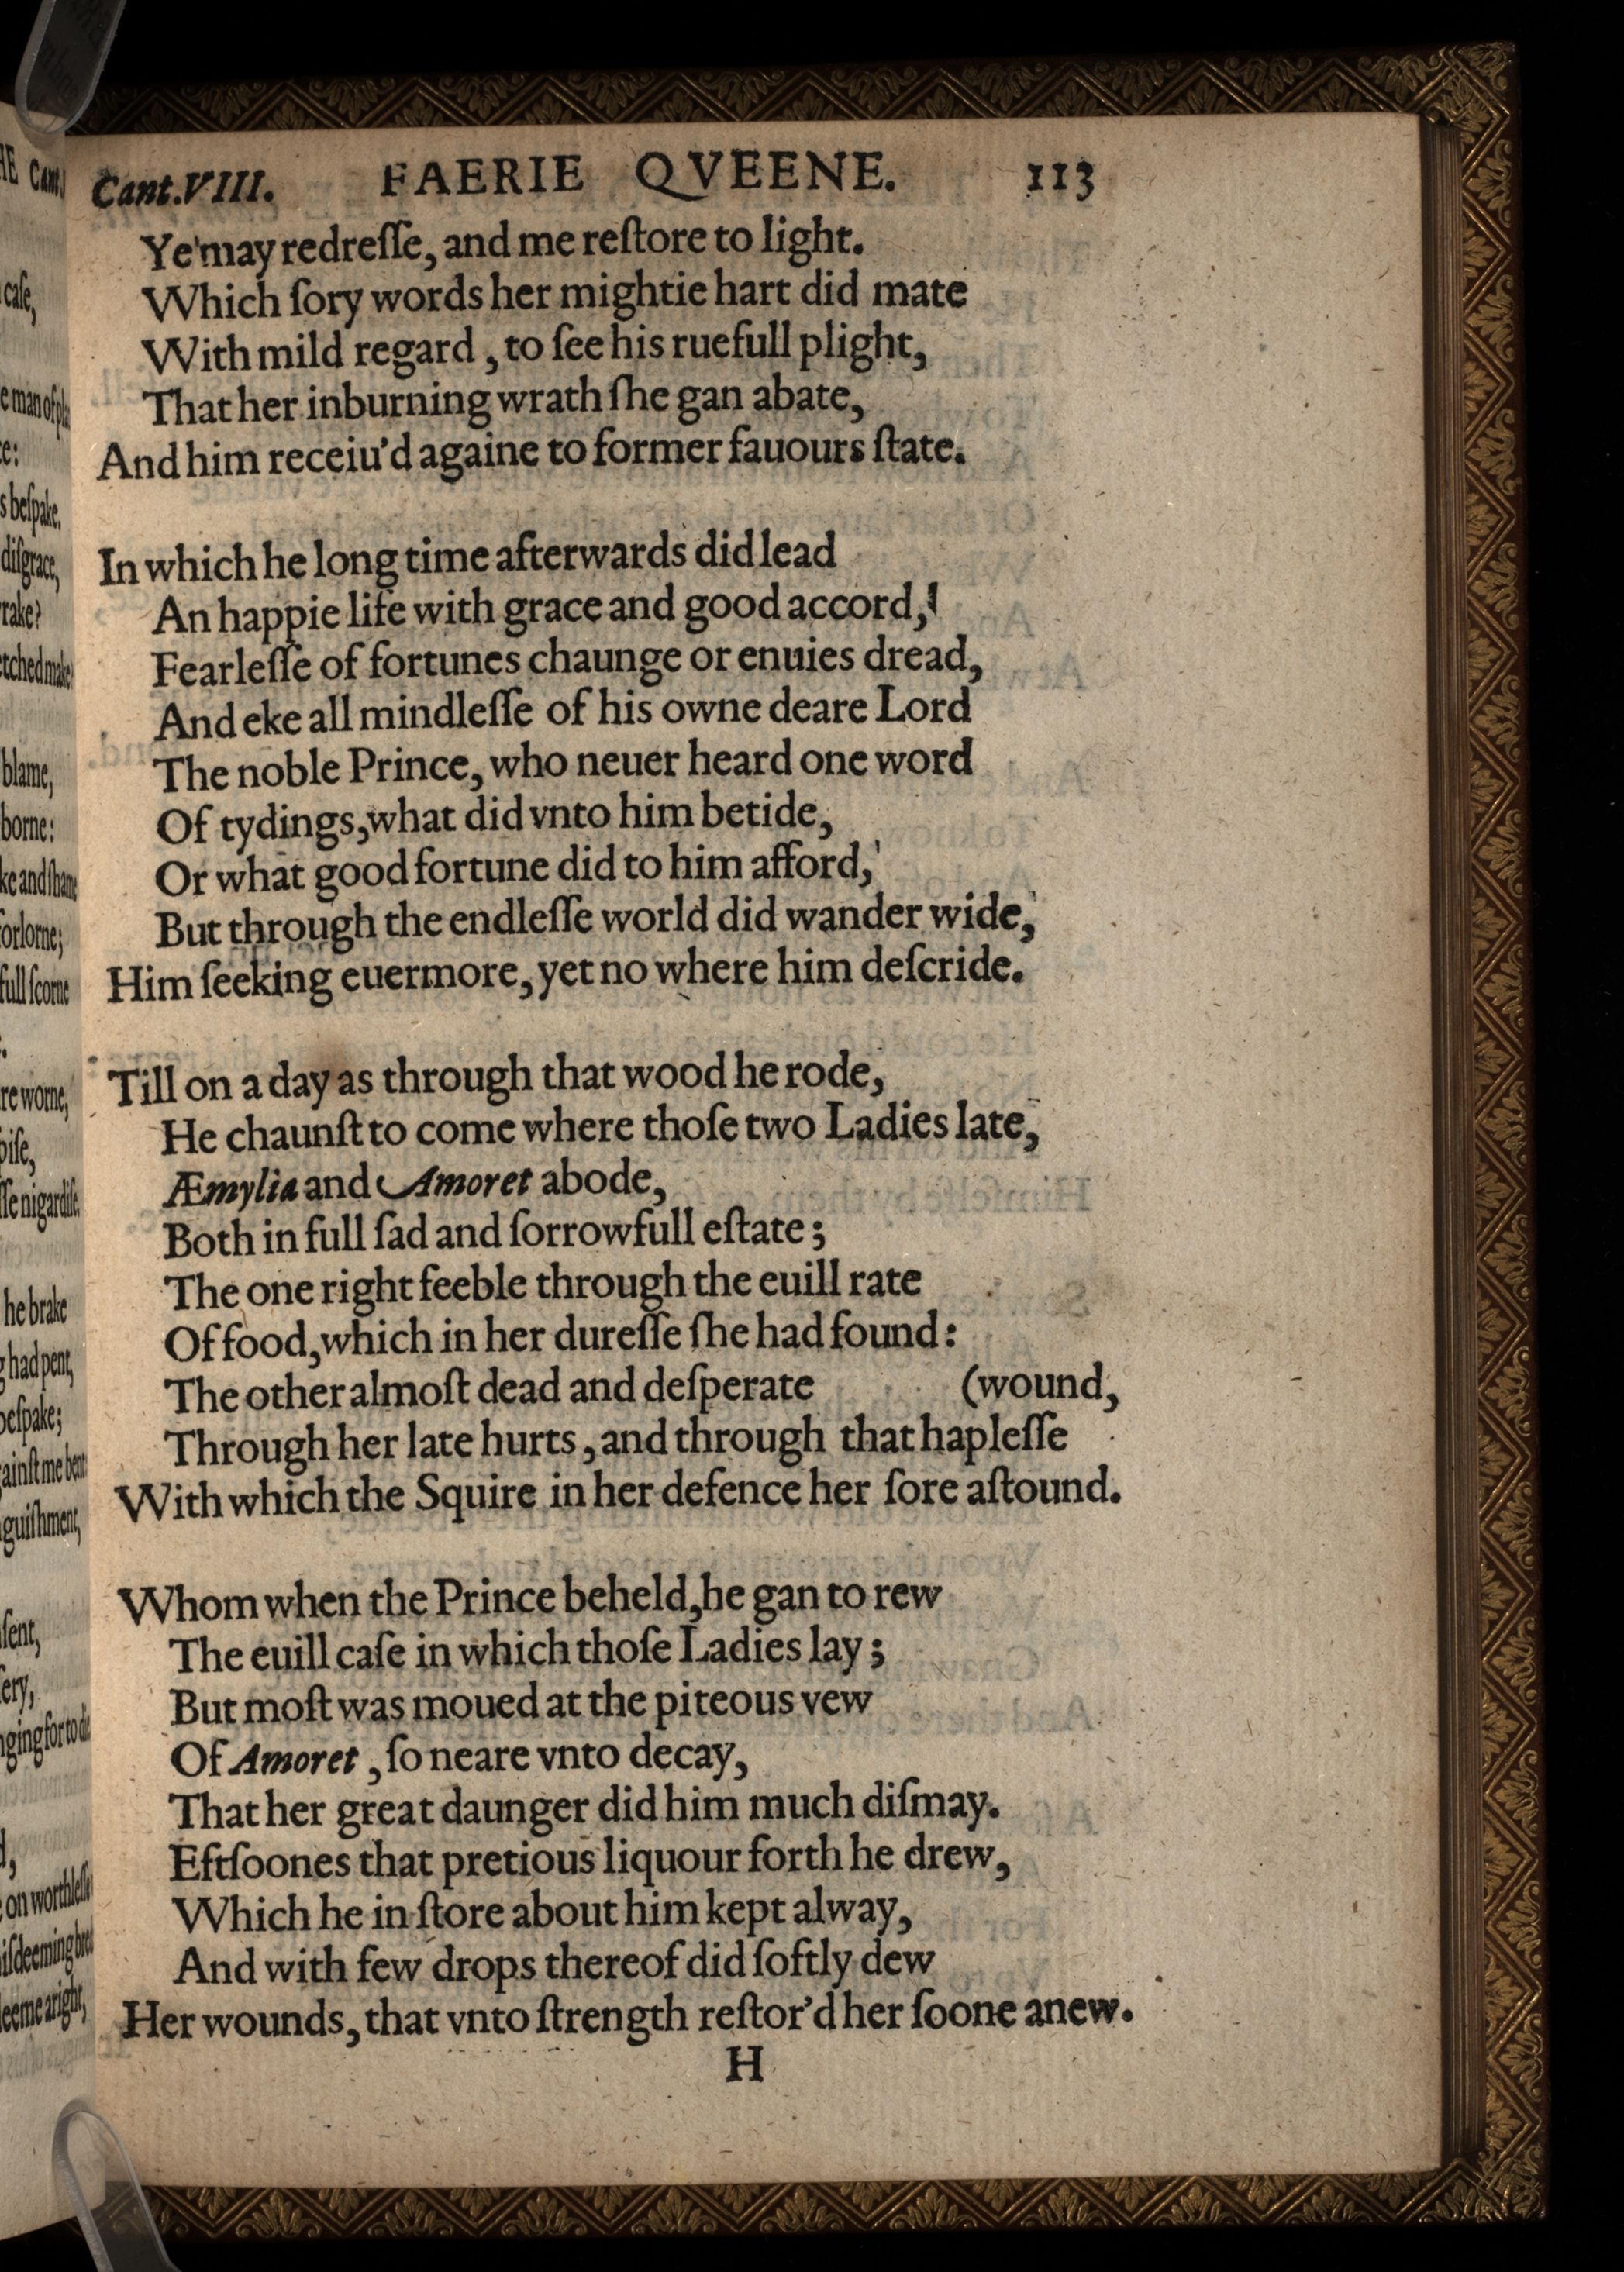 Cant.VIII. FAERIE QVEENE. 113
Ye may redreſſe, and me reſtore to light.
Which ſory words her mightie hart did mate
With mild regard, to ſee his ruefull plight,
That her inburning wrath ſhe gan abate,
And him receiu'd againe to former fauours ſtate.
In which he long time afterwards did lead
An happie life with grace and good accord,
Fearleſſe of fortunes chaunge or enuies dread,
And eke all mindleſſe of his owne deare Lord
The noble Prince, who neuer heard one word
Of tydings, what did vnto him betide,
Or what good fortune did to him afford,
But through the endleſſe world did wander wide,
Him ſeeking euermore, yet no where him deſcride.
Till on a day as through that wood he rode,
He chaunſt to come where thoſe two Ladies late,
Æmylia and Amoret abode,
Both in full ſad and ſorrowfull eſtate;
The one right feeble through the euill rate
Of food, which in her dureſſe ſhe had found:
The other almoſt dead and deſperate (wound,
Through her late hurts, and through that hapleſſe
With which the Squire in her defence her ſore aſtound.
Whom when the Prince beheld, he gan to rew
The euill caſe in which thoſe Ladies lay;
But moſt was moued at the piteous vew
Of Amoret, ſo neare vnto decay,
That her great daunger did him much diſmay.
Eftſoones that pretious liquour forth he drew,
Which he in ſtore about him kept alway,
And with few drops thereof did ſoftly dew
Her wounds, that vnto ſtrength reſtor'd her ſoone anew.
H